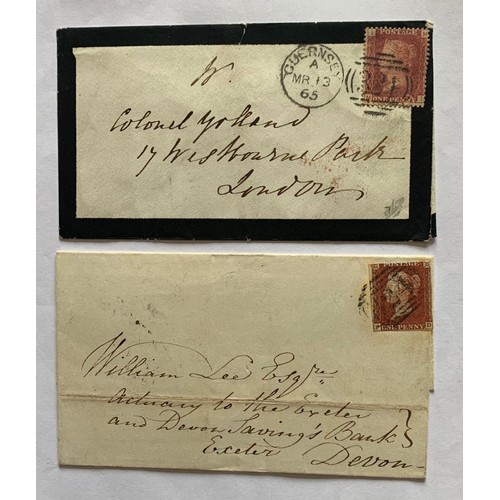 GUERNSEY
A
MR 13
65
POSTAGE
ONE PENNY
Colonel Yolland
17 Westbourne Park
London
POSTAGE
ONE PENNY
William Lee Esqre
Actuary to the Exeter
and Devon Saving's Bank
Exeter Devon